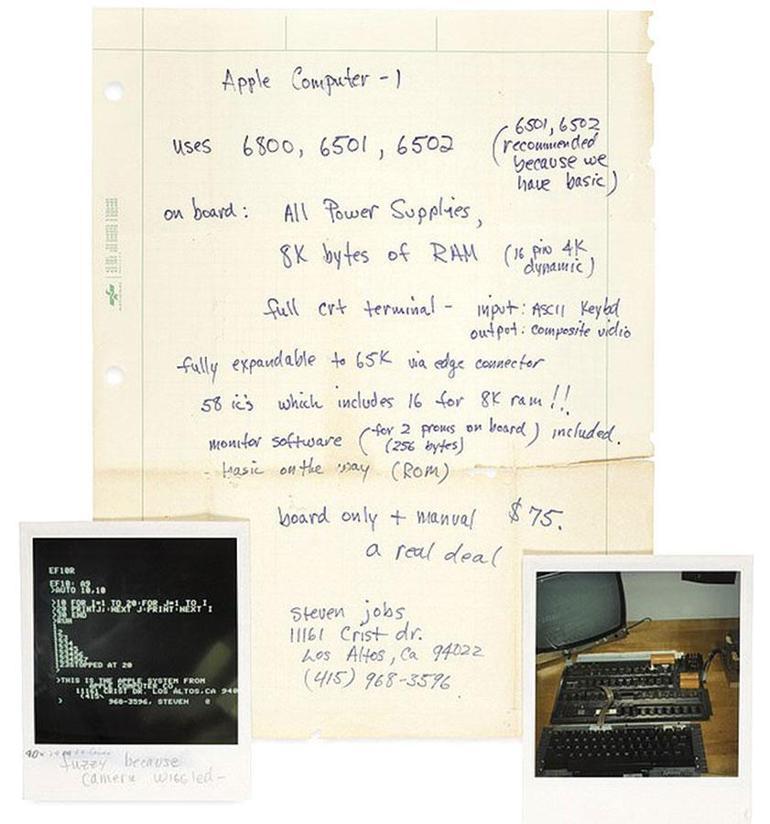 Apple Computer - 1
uses 6800, 6501, 6502
(6501, 6502
recommended
because we
have basic)
on board: All Power Supplies,
8K bytes of RAM (16 pin 4K
dynamic)
full crt terminal - input: ASCII Keybd
output: composite vidio
fully expandable to 65K via edge connector
58 ic's which includes 16 for 8K ram!!
monitor software (for 2 proms on board) included.
(256 bytes)
- basic on the way (ROM)
board only + manual $75.
a real deal
Steven jobs
11161 Crist dr.
Los Altos, Ca 94022
(415) 968-3596
EF10R
EF10: A9
>AUTO 10,10
>10 FOR I=1 TO 20:FOR J=1 TO I
>20 PRINTJ;:NEXT J:PRINT:NEXT I
>30 END
>RUN
STOPPED AT 20
>THIS IS THE APPLE SYSTEM FROM
APPLE COMPUTER CO
11161 CRIST DR. LOS ALTOS,CA 940
(415)
> 968-3596, STEVEN
fuzzy because
camera wiggled-